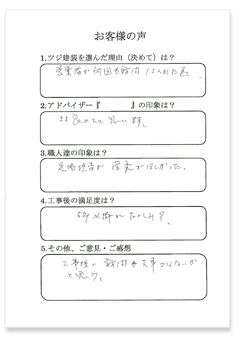 お客様の声
1.ツジ塗装を選んだ理由（決めて）は？
営業者が何回も訪問してくれた為
2.アドバイザー『　　　』の印象は？
思います。
3.職人達の印象は？
足場担当が
ほしかった。
4.工事後の満足度は？
5年以降がたのしみ？
5.その他、ご意見・ご感想
工事後の訪問も大事ではないか
と思う。